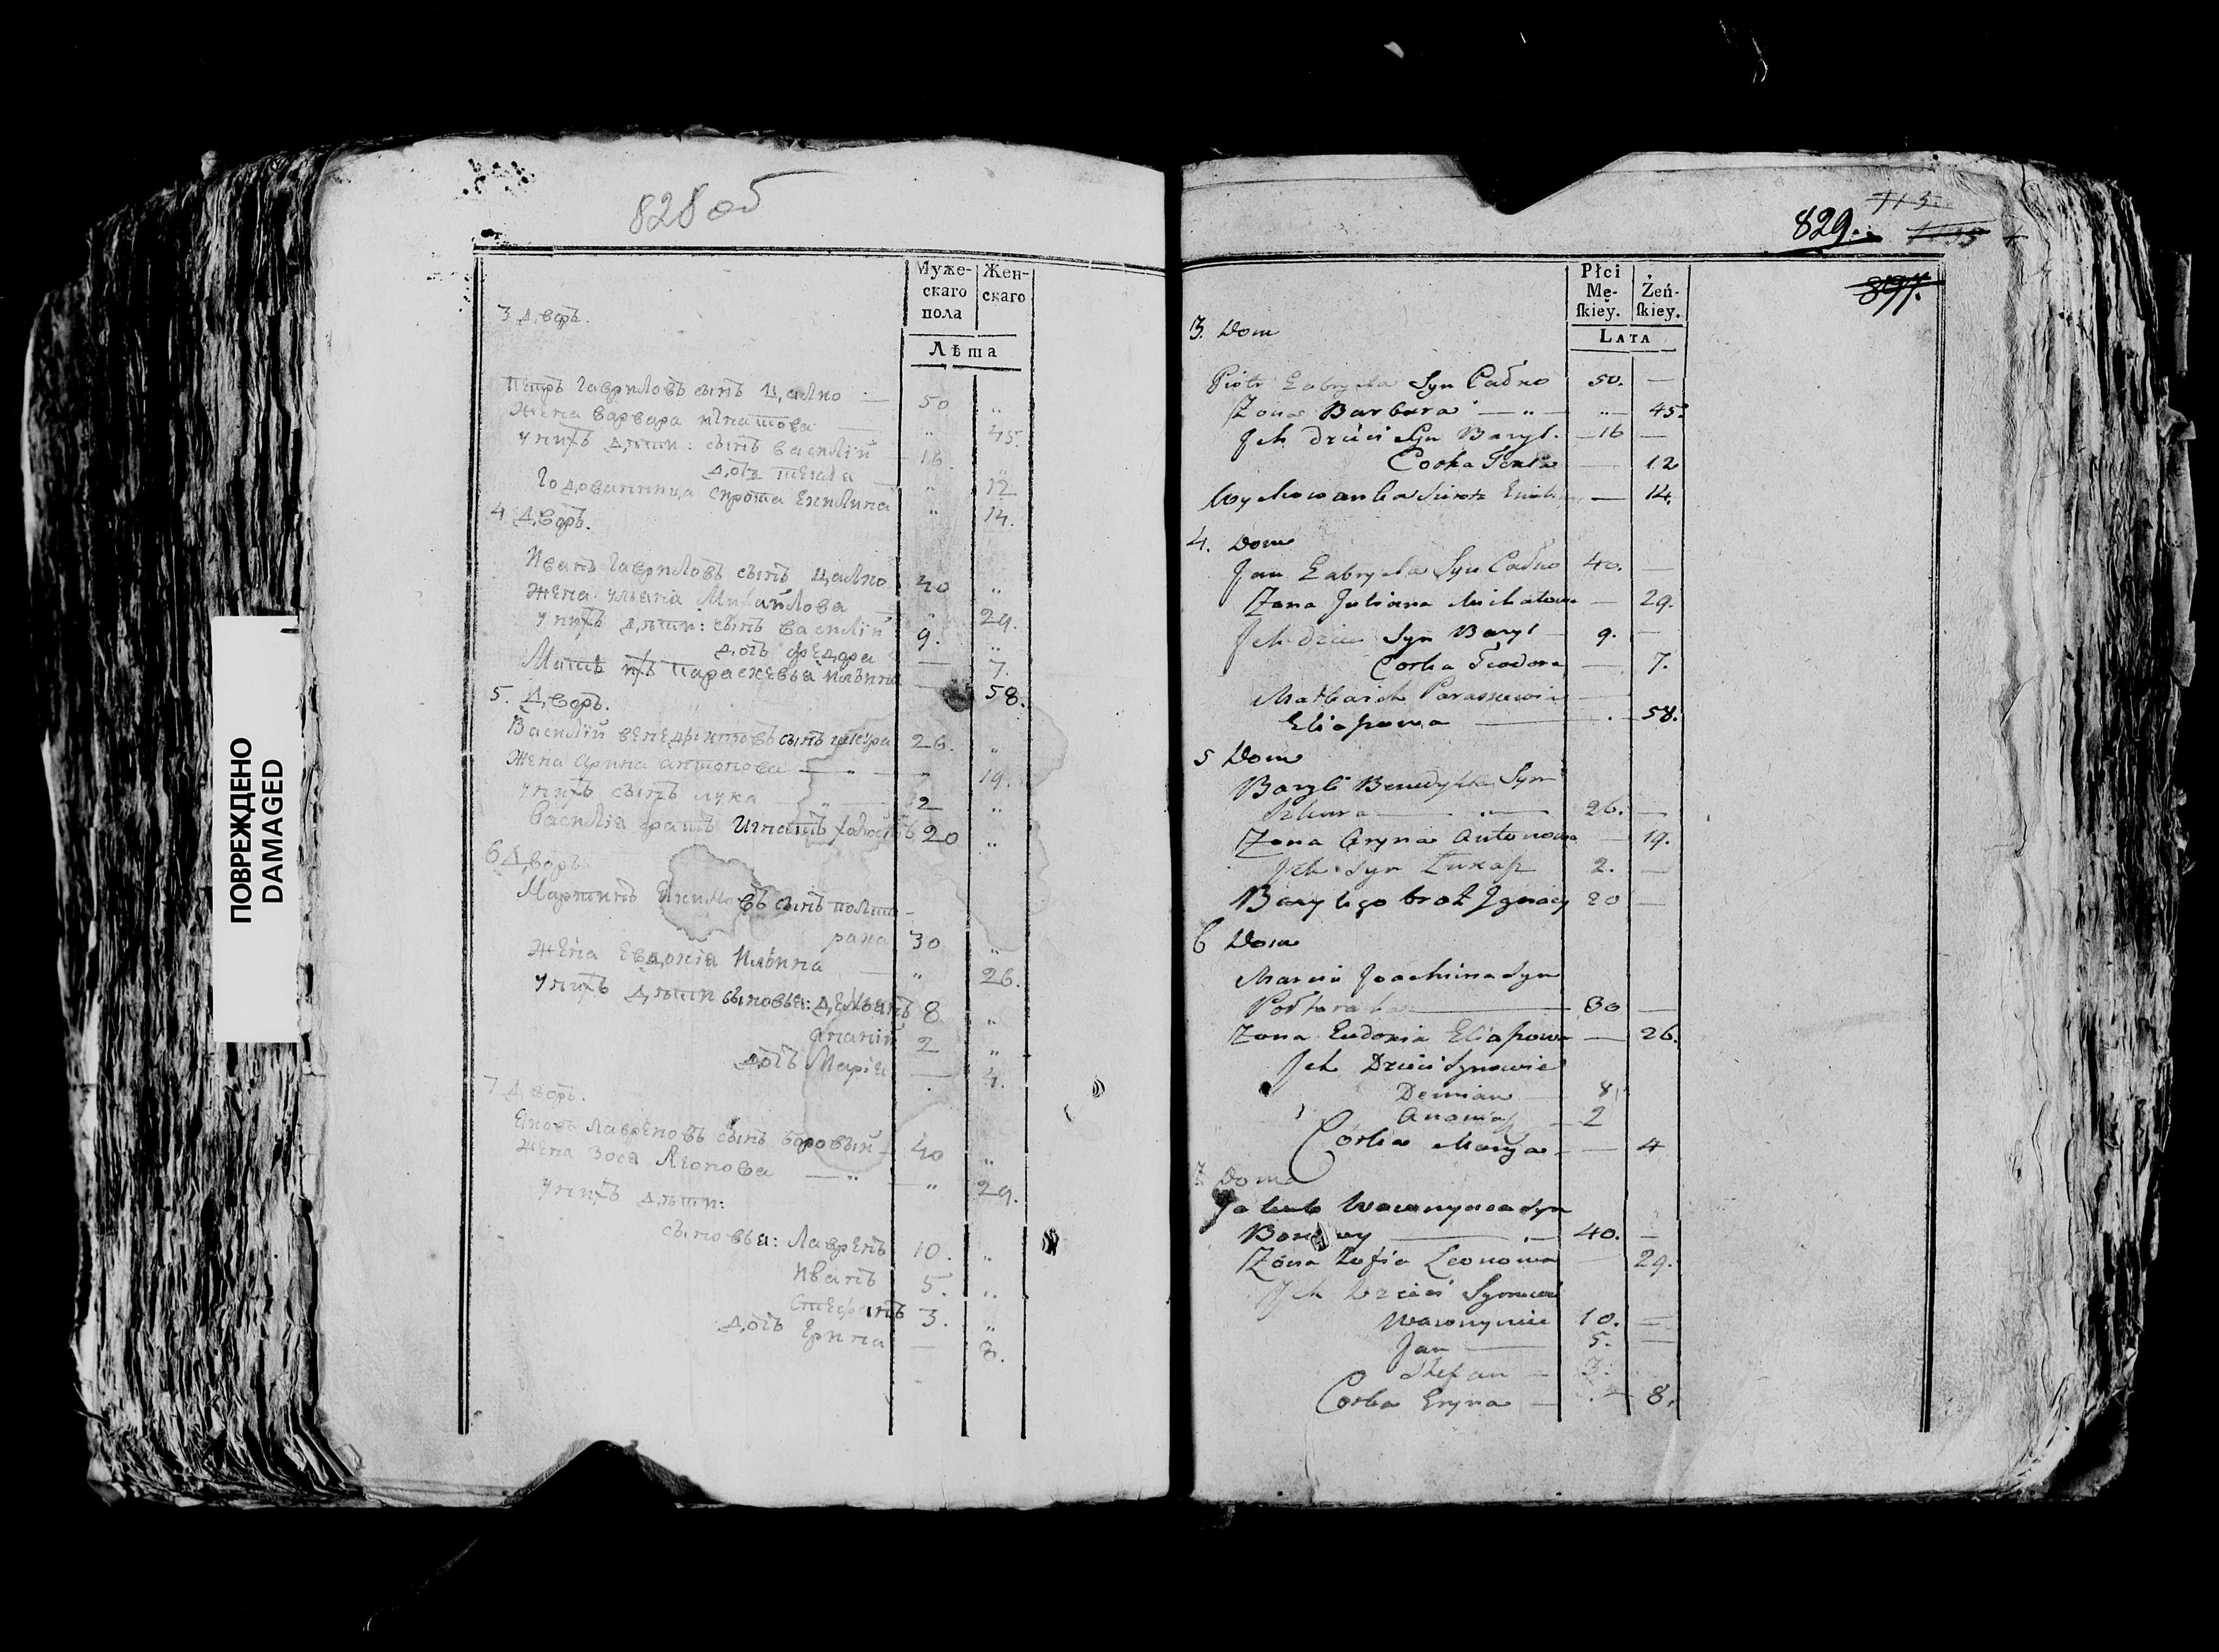 ПОВРЕЖДЕНО
DAMAGED
828 об
Муже-
скаго
пола
Жен-
скаго
Лѣта
3 дворъ.
Петръ Гавриловъ сынъ Цално — 50 "
Жена Варвара Игнатова — " 45.
у нихъ дѣти: сынъ Василій 16. "
дочь Текла " 12
Годованница сирота Екилина " 14.
4 дворъ.
Иванъ Гавриловъ сынъ Цално 40 "
Жена Уліана Михайлова " 29.
у нихъ дѣти: сынъ Василій 9. "
дочь Федора — 7.
Мать ихъ Параскевья Ильина — 58.
5. дворъ.
Василій Венедиктовъ сынъ 26. "
Жена Арина Антонова — " — " 19.
у нихъ сынъ Лука — " — 2 "
Василія братъ Игнатъ холостъ 20 "
6 дворъ
Мартинъ Екимовъ сынъ Полта-
рака 30 "
Жена Евдокія Ильина — " 26.
у нихъ дѣти сыновья: Деміанъ 8 "
Ананій 2 "
дочь Марія — 4.
7 дворъ.
Яковъ Лавреновъ сынъ Боровый — 40 "
Жена Зося Леонова — " — " 29.
у нихъ дѣти:
сыновья: Лавренъ 10. "
Иванъ 5. "
Стефанъ 3. "
дочь Ерина — 8.
829.
113
897.
Płci
Mę-
ſkiey.
Żeń-
ſkiey.
LATA
3. Dom
Piotr Gabryela Syn Całno 50. —
Zona Barbara — " — " — 45.
Jch Dzieci Syn Bazyl. — 16 —
Corka Tekla — 12
Wychowanka Sierota — 14.
4. Dom
Jan Gabryela Syn Całno 40. —
Zona Juliana Michałowa — 29.
Jch Dzieci Syn Bazyl 9. —
Corka Teodora — 7.
Matka ich Paraskewia
Eliaszowa — . — 58.
5 Dom
Bazyli Benedykta Syn
Szkura — " — 26. —
Zona Aryna Antonowa — 19.
Jch Syn Łukasz 2. —
Bazylego brat Jgnacy 20 —
6 Dom
Marcin Joachima Syn
Połtaraka — 30 —
Zona Eudoxia Eliaszowa — 26.
Jch Dzieci Synowie
Demian — 8.
Ananiasz — 2
Córka Marya — — 4
7. Dom
Jakub Wawrzynca Syn
Borowy — 40. —
Zona Zofia Leonowa 29.
Jch Dzieci Synowie
Wawrzyniec 10. —
Jan — 5. —
Stefan — 3.
Corka Eryna — 8.